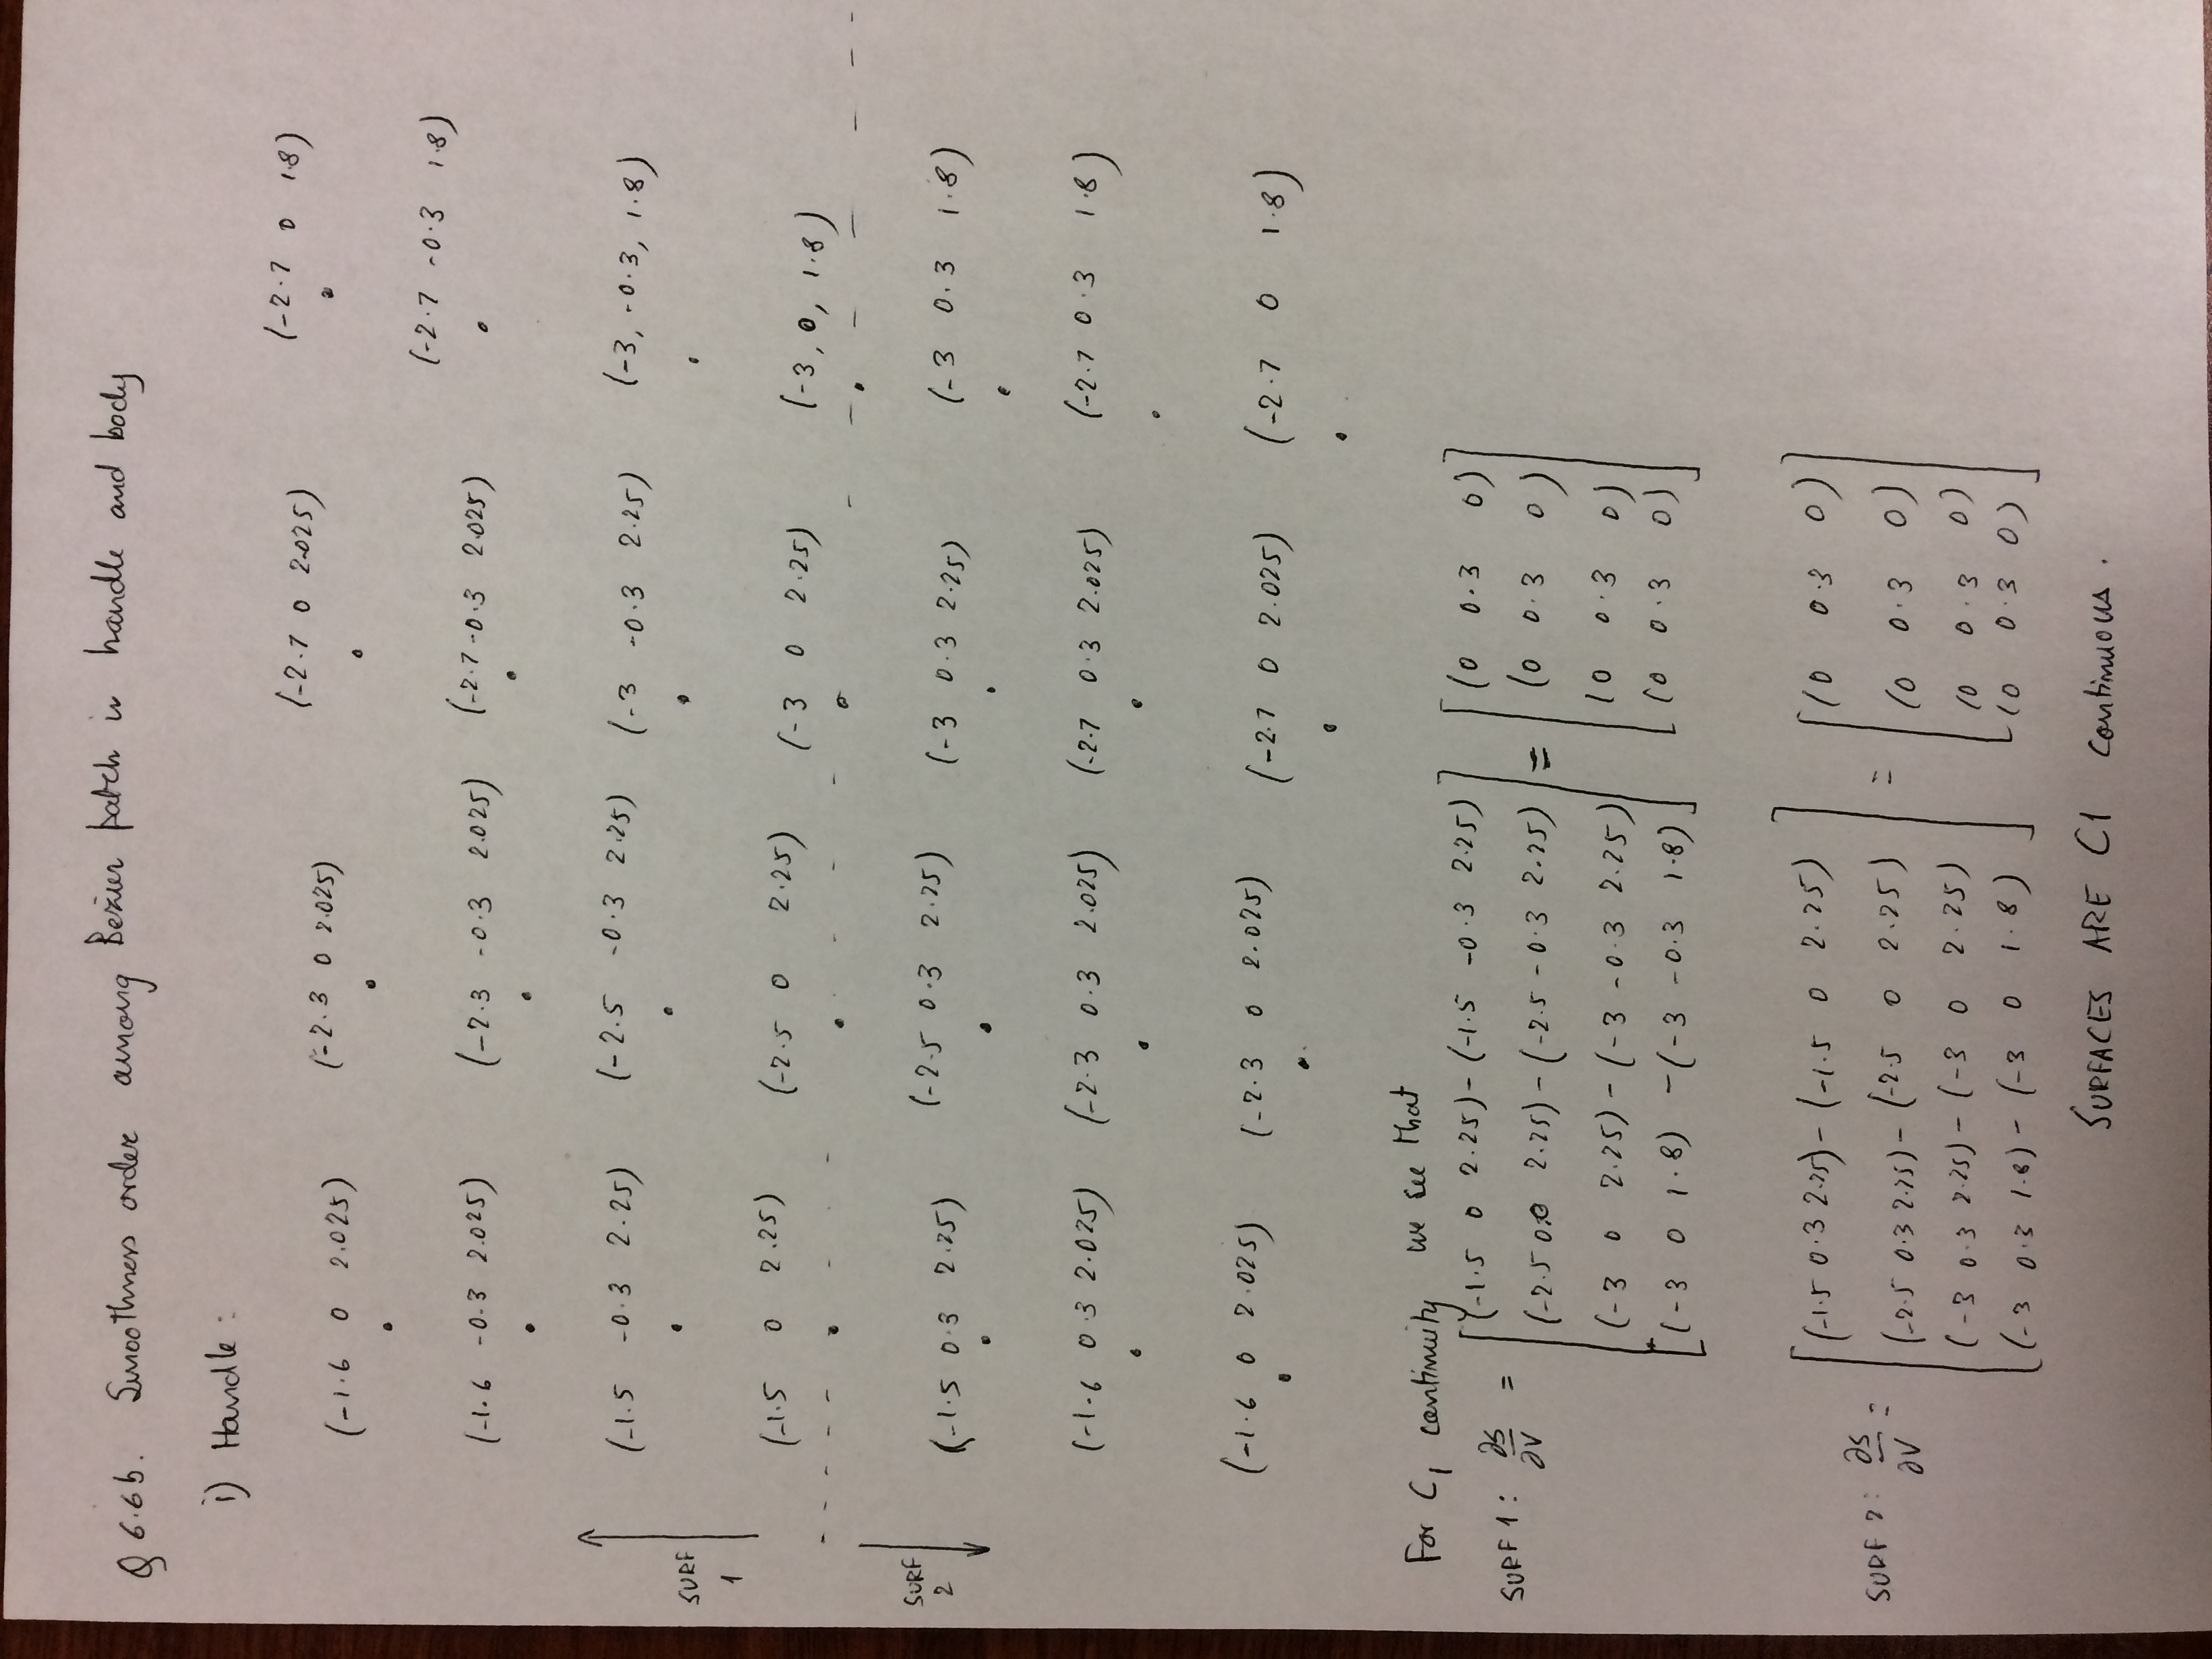 Q 6.6b. Smoothness order among Bezier patch in handle and body
i) Handle :
(-1.6 0 2.025) (-2.3 0 2.025) (-2.7 0 2.025) (-2.7 0 1.8)
(-1.6 -0.3 2.025) (-2.3 -0.3 2.025) (-2.7 -0.3 2.025) (-2.7 -0.3 1.8)
SURF 1 (-1.5 -0.3 2.25) (-2.5 -0.3 2.25) (-3 -0.3 2.25) (-3, -0.3, 1.8)
(-1.5 0 2.25) (-2.5 0 2.25) (-3 0 2.25) (-3, 0, 1.8)
SURF 2 (-1.5 0.3 2.25) (-2.5 0.3 2.25) (-3 0.3 2.25) (-3 0.3 1.8)
(-1.6 0.3 2.025) (-2.3 0.3 2.025) (-2.7 0.3 2.025) (-2.7 0.3 1.8)
(-1.6 0 2.025) (-2.3 0 2.025) (-2.7 0 2.025) (-2.7 0 1.8)
For C1 continuity we see that
SURF 1: ∂S/∂V = [(-1.5 0 2.25) - (-1.5 -0.3 2.25) = [(0 0.3 0)
(-2.5 0.0 2.25) - (-2.5 -0.3 2.25) (0 0.3 0)
(-3 0 2.25) - (-3 -0.3 2.25) (0 0.3 0)
(-3 0 1.8) - (-3 -0.3 1.8)] (0 0.3 0)]
SURF 2: ∂S/∂V = [(-1.5 0.3 2.25) - (-1.5 0 2.25) = [(0 0.3 0)
(-2.5 0.3 2.25) - (-2.5 0 2.25) (0 0.3 0)
(-3 0.3 2.25) - (-3 0 2.25) (0 0.3 0)
(-3 0.3 1.8) - (-3 0 1.8)] (0 0.3 0)]
SURFACES ARE C1 continuous.